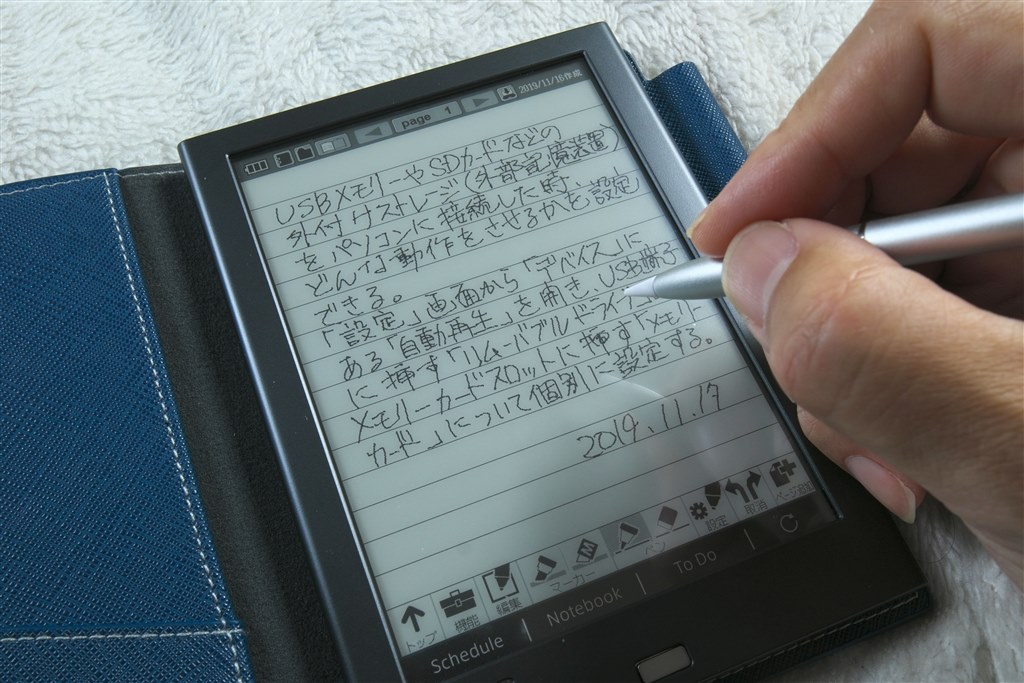 page 1 2019/11/16作成
USBメモリーやSDカードなどの
外付けストレージ(外部記憶装置)
をパソコンに接続した時、
どんな動作をさせるかを設定
できる。
「設定」画面から「デバイス」に
ある「自動再生」を開き、USB端子
に挿す「リムーバブルドライブ
メモリーカードスロットに挿す「メモリー
カード」について個別に設定する。
2019.11.17
トップ 機能 編集 マーカー ペン 設定 取消
Schedule Notebook To Do